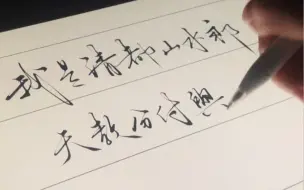 我是清都山水郎
天教分付與